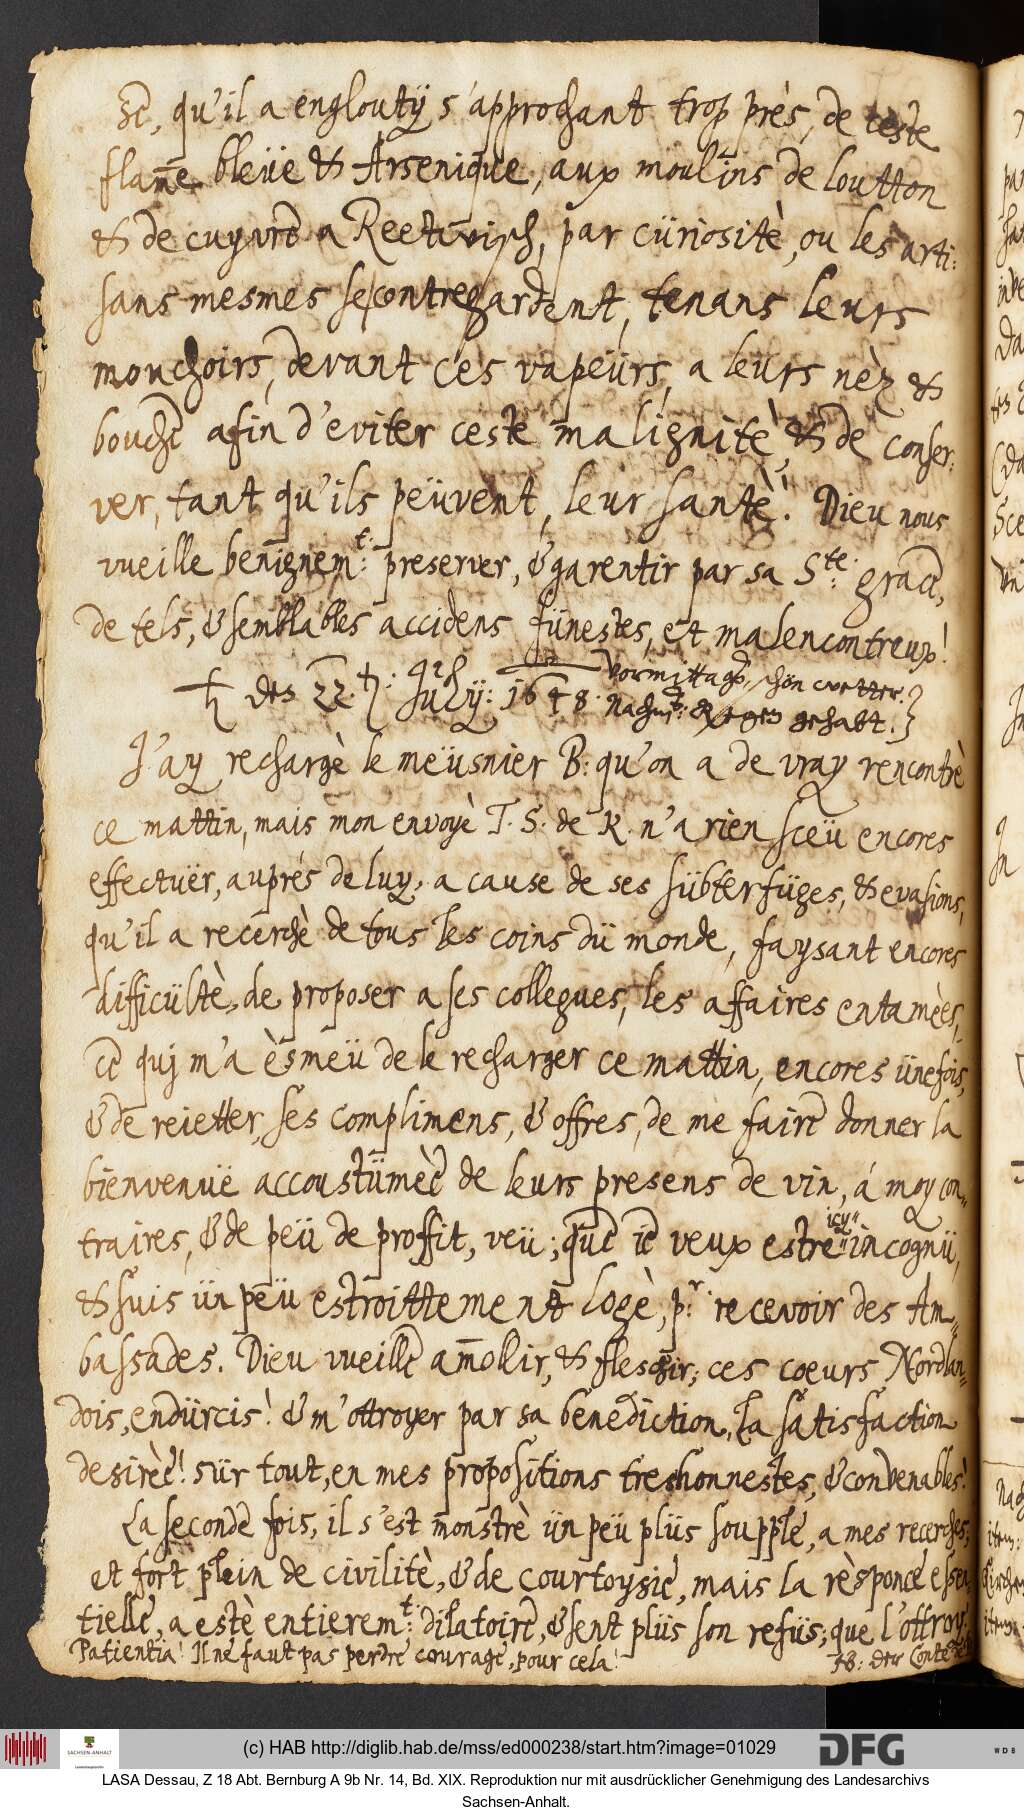 &c, qu'il a engloutÿ s'approchant trop près, de ceste
flam̄e, bleüe & Arsenique, aux moulins de loutton
& de cuyvre a Reetwisch, par cüriositè, ou les arti:
sans mesmes se contregardent, tenans leurs
mouchoirs, devant ces vapeürs, a leurs nèz &
bouche afin d'eviter ceste malignitè, & de conser:
ver, tant qu'ils peüvent, leur santè. Dieu nous
vueille benignem.t: preserver, & garentir par sa S.te: grace,
de tels, & semblables accidens fünestes, et malencontreux!
♄ des 22. ♄: Julÿ: 1648. Vormittags, schön wetter.
Nachm: Regen gehabt.
J'ay rechargè le meüsnier B: qu'on a de vray rencontrè
ce mattin, mais mon envoyè T. S. de K. n'a rien sceü encores
effectuër, auprés de luy, a cause de ses sübterfüges, & evasions,
qu'il a recerchè de tous les coins dü monde, faysant encores
difficültè, de proposer a ses collegues, les affaires entamèes,
ce quj m'a èsmeü de le recharger ce mattin, encores ünefois,
& de reietter, ses complimens, & offres, de me faire donner la
bienvenuë accoustümèe de leurs presens de vin, á moy con„
traires, & de peü de proffit, veü; que ie veux estre icy incognü,
& suis ün peü estroittement logè, p.r recevoir des Am„
bassades. Dieu vueille amollir, & fleschir, ces coeurs Nordlan„
dois, endürcis! & m'ottroyer par sa benediction, la satisfaction
desirèe! sür tout, en mes propositions treshonnestes, & convenables!
La seconde fois, il s'est monstrè ün peü plüs soupple, a mes recerches,
et fort plein de civilitè, & de courtoysie, mais la rèsponce essen
tielle, a estè entierem.t: dilatoire, & sent plüs son refüs; que l'offroy.
Patientia! Il ne faut pas perdre courage, pour cela!
NB: Der Conte
(c) HAB http://diglib.hab.de/mss/ed000238/start.htm?image=01029
SACHSEN-ANHALT
DFG
W D B
LASA Dessau, Z 18 Abt. Bernburg A 9b Nr. 14, Bd. XIX. Reproduktion nur mit ausdrücklicher Genehmigung des Landesarchivs
Sachsen-Anhalt.